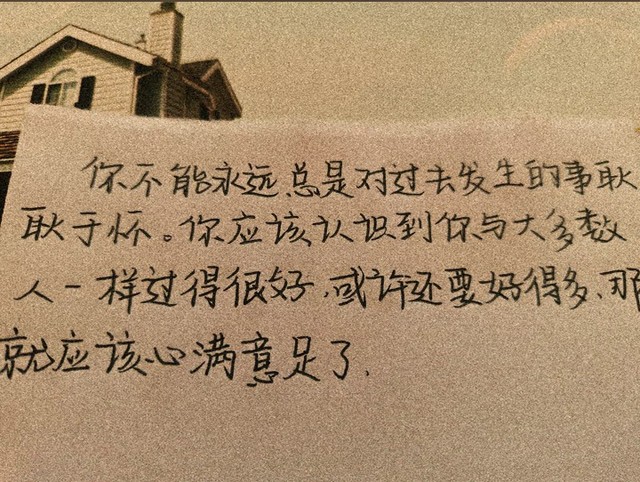 你不能永远总是对过去发生的事耿
耿于怀。你应该认识到你与大多数
人一样过得很好,或许还要好得多、那
就应该心满意足了.